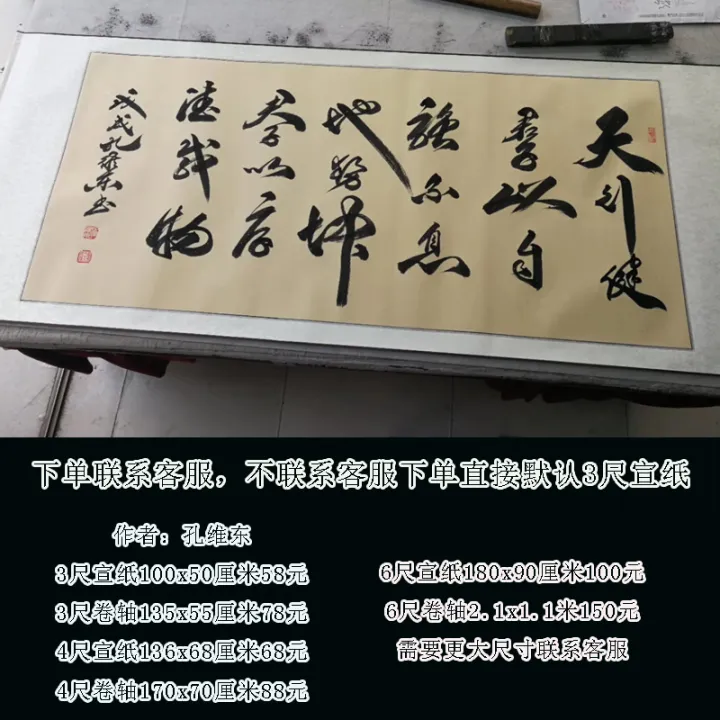 天行健
君子以自
强不息
地势坤
君子以厚
德载物
戊戌孔维东书
下单联系客服，不联系客服下单直接默认3尺宣纸
作者：孔维东
3尺宣纸100x50厘米58元
3尺卷轴135x55厘米78元
4尺宣纸136x68厘米68元
4尺卷轴170x70厘米88元
6尺宣纸180x90厘米100元
6尺卷轴2.1x1.1米150元
需要更大尺寸联系客服